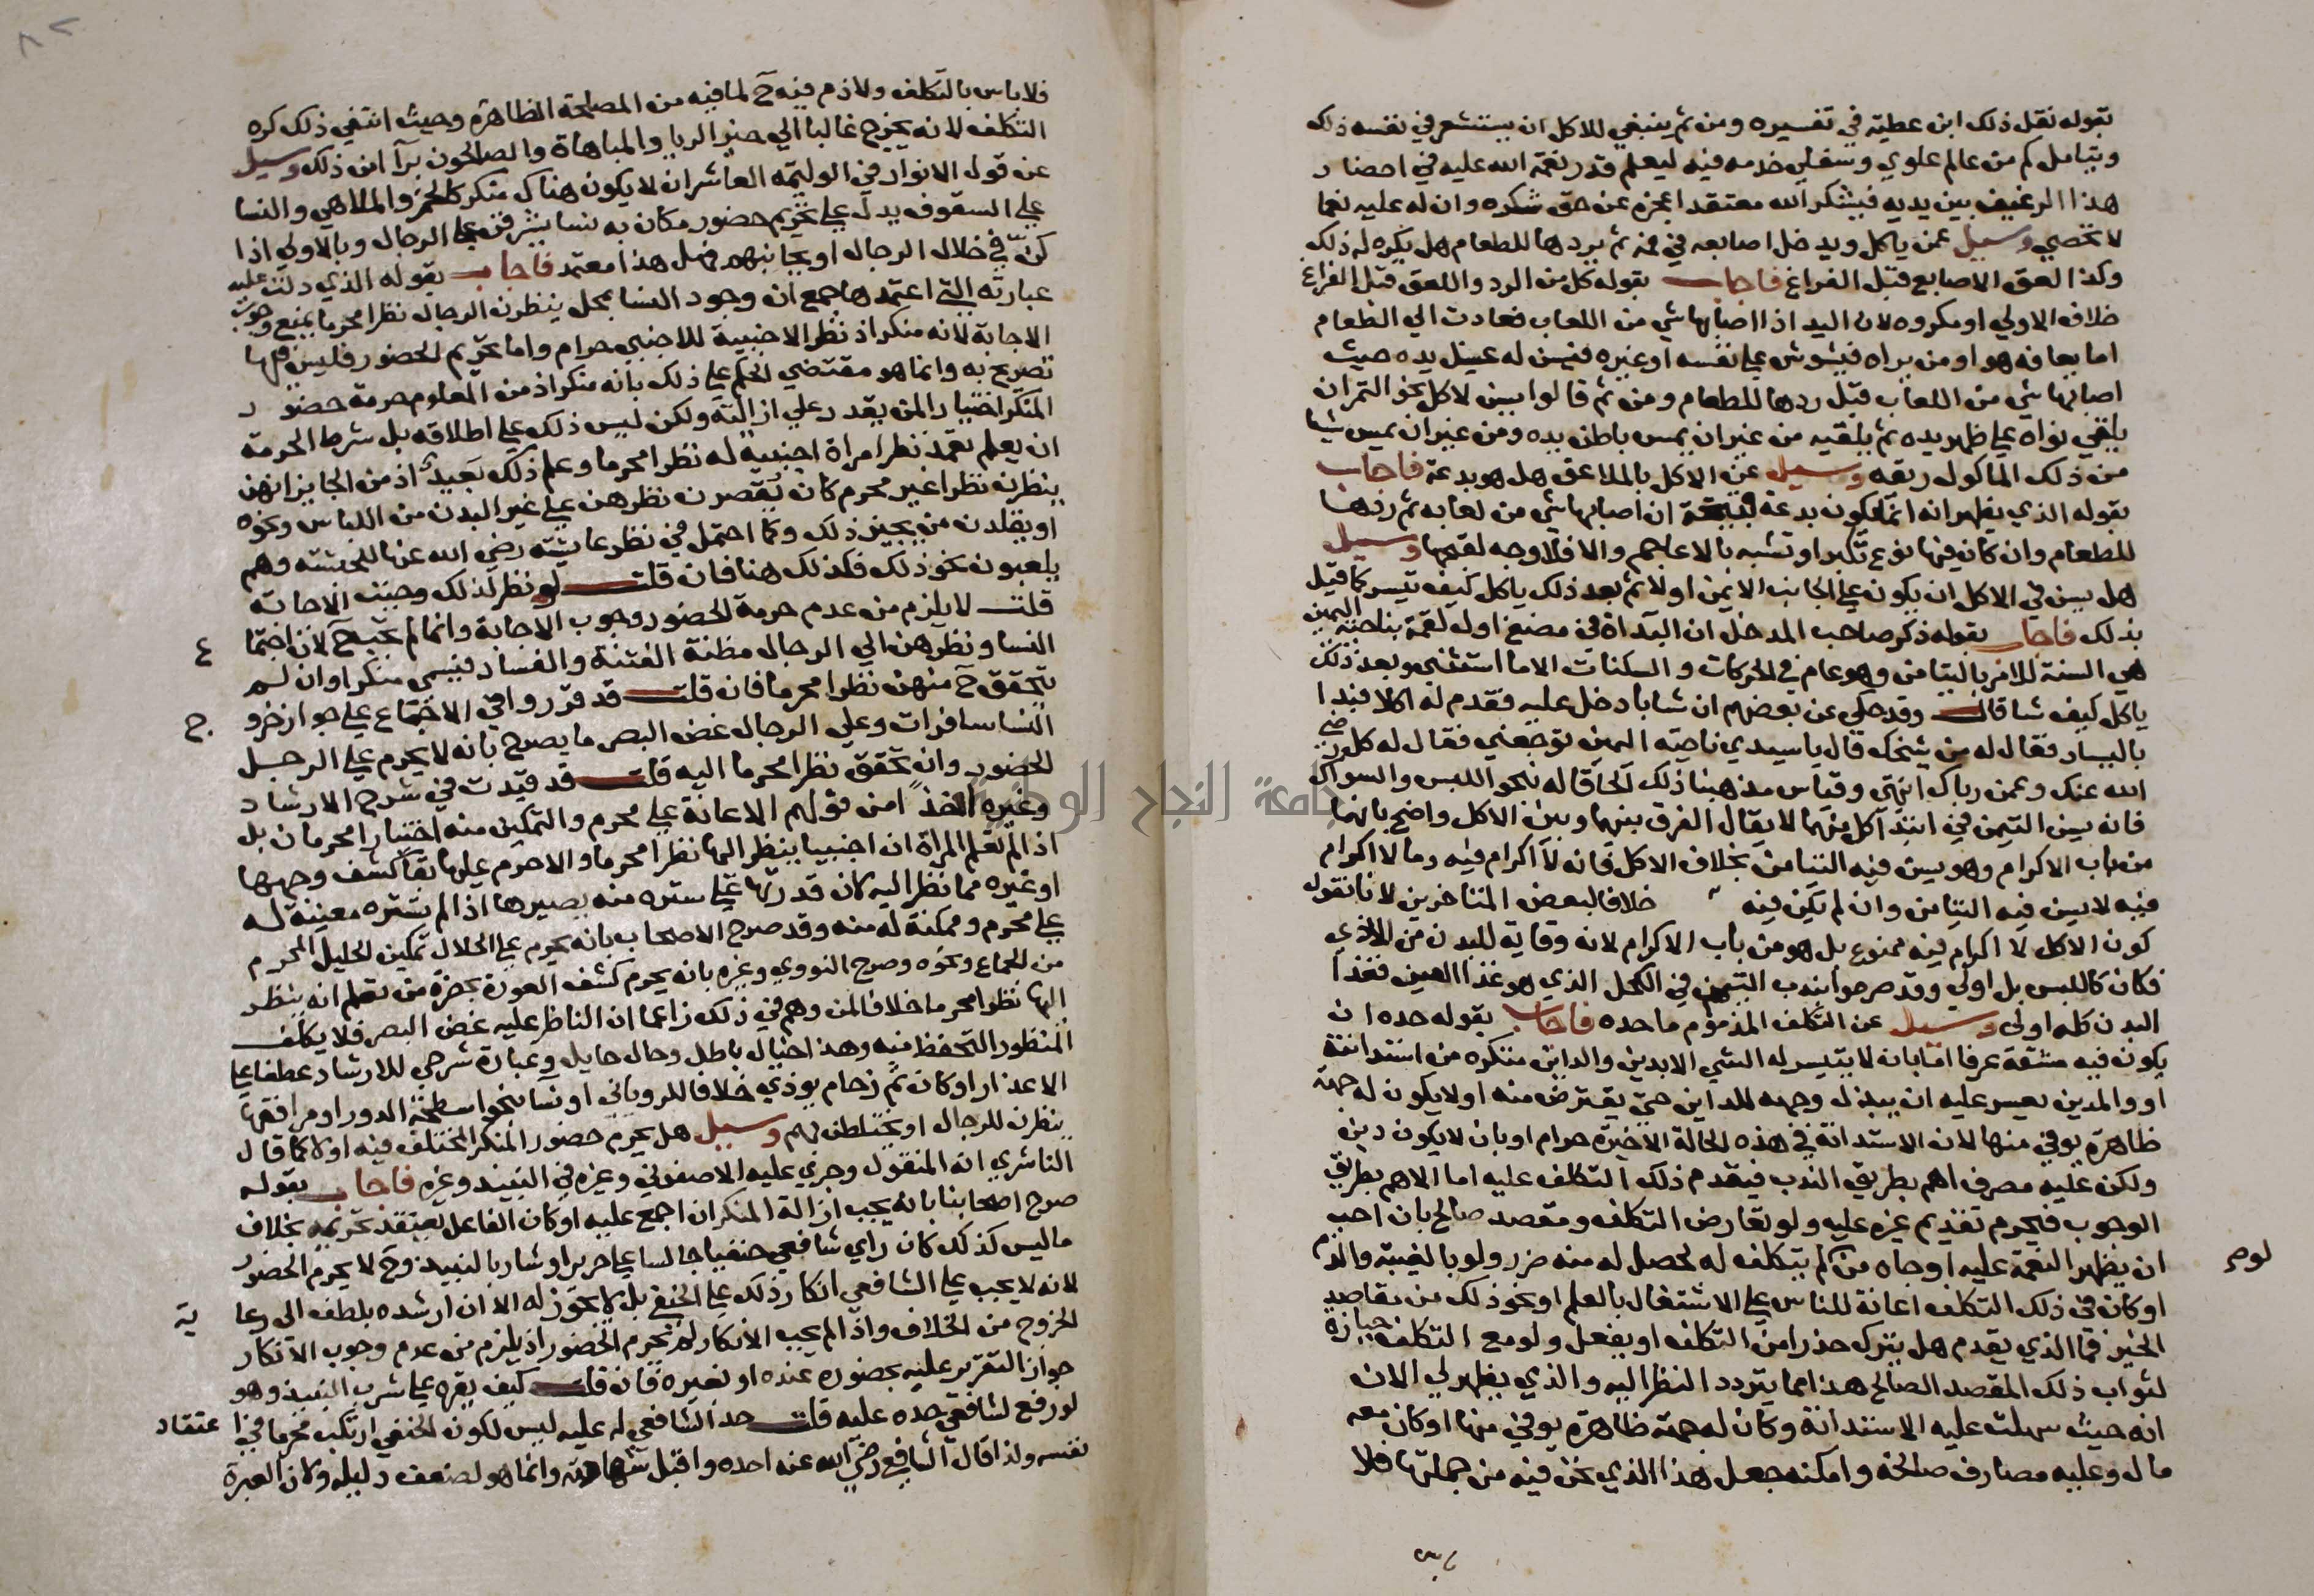 بقوله نقل ذلك ابن عطيه في تفسيره ومن ثم ينبغي للاكل ان يستشعر في نفسه ذلك
ويتامل كم من عالم علوي وسفلي خدمه فيه ليعلم قدر نعمة الله عليه في احضار
هذا الرغيف بين يديه فيشكر الله معتقدا عجزه عن حق شكره وان له عليه نعما
لا تحصي وسيل عمن ياكل ويدخل اصابعه في فمه ثم يردها للطعام هل يكره له ذلك
وكذا لعق الاصابع قبل الفراغ فاجاب بقوله كل من الرد واللعق قبل الفراغ
خلاف الاولي او مكروه لان اليد اذا اصابها شي من اللعاب فعادت الي الطعام
اما يعافه هو او من يراه فيشوش علي نفسه او غيره فيسن له غسل يده حيث
اصابها شي من اللعاب قبل ردها للطعام ومن ثم قالوا يسن لاكل نحو التمر ان
يلقي نواه علي ظهر يده ثم يلقيه من غير ان يمس باطن يده ومن غير ان يمس شيا
من ذلك الماكول ريقه وسيل عن الاكل بالملاعق هل هو بدعة فاجاب
بقوله الذي يظهر انه انما يكون بدعة قبيحة ان اصابها شي من لعابه ثم ردها
للطعام وان كان فيها نوع تكبر او تشبه بالاعاجم والا فلا وجه لقبحها وسيل
هل يسن في الاكل ان يكون علي الجانب الايمن اولا ثم بعد ذلك ياكل كيف تيسر كما قيل
بذلك فاجاب بقوله ذكر صاحب المدخل ان البداة في مضغ اول لقمة بناحية اليمين
هي السنة للامر بالتيامن وهو عام في الحركات والسكنات الا ما استثني وبعد ذلك
ياكل كيف شا قال وقد حكي عن بعضهم ان شابا دخل عليه فقدم له اكلا فبدا
باليسار فقال له من شيخك قال يا سيدي ناحية اليمين توجعني فقال له كل رضي
الله عنك وعمن رباك انتهي وقياس مذهبنا ذلك الحاقا له بنحو اللبس والسواك
فانه يسن التيمن في ابتدا كل منهما لا يقال الفرق بينهما وبين الاكل واضح بانهما
من باب الاكرام وهو يسن فيه التيامن بخلاف الاكل فانه لا اكرام فيه وما لا اكرام
فيه لا يسن فيه التيامن وان لم يكن فيه خلافا لبعض المتاخرين لانا نقول
كون الاكل لا اكرام فيه ممنوع بل هو من باب الاكرام لانه وقاية للبدن من الاذي
فكان كاللبس بل اولي وقد صرحوا بندب التيمن في الكحل الذي هو غذا العين فغذا
البدن كله اولي وسيل عن التكلف المذموم ما حده فاجاب بقوله حده ان
يكون فيه مشقة عرفا اما بانه لا يتيسر له الشي الا بدين والداين متكره من استدانة
او والمدين يعسر عليه ان يبذل وجهه للمداين حتي يقترض منه او لا يكون له جهة
ظاهرة يوفي منها لان الاستدانة في هذه الحالة الاخيرة حرام او بان لا يكون دين
ولكن عليه مصرف اهم بطريق الندب فيقدم ذلك التكلف عليه اما الاهم بطريق
الوجوب فيحرم تقديم غيره عليه ولو تعارض التكلف ومقصد صالح بان احب
ان يظهر النعمة عليه او جاه من لم يتكلف له لحصل له منه ضرر ولو بالغيبة والذم
لوم
او كان في ذلك التكلف اعانة للناس علي الاشتغال بالعلم او نحو ذلك من مقاصد
الخير فما الذي يقدم هل يترك حذرا من التكلف او يفعل ولو مع التكلف حيازة
لثواب ذلك المقصد الصالح هذا مما يتردد النظر اليه والذي يظهر لي الان
انه حيث سهلت عليه الاستدانة وكان له جهة ظاهرة يوفي منها او كان معه
مال وعليه مصارف صالحة وامكنه جعل هذا الذي نحن فيه من جملتها فلا
فلا باس بالتكلف ولا ذم فيه ح لما فيه من المصلحة الظاهرة وحيث انتفي ذلك كره
التكلف لانه يخرج غالبا الي حيز الريا والمباهاة والصالحون برآ من ذلك وسيل
عن قول الانوار في الوليمة العاشر ان لا يكون هناك منكر كالخمر والملاهي والنسا
علي السقوف يدل علي تحريم حضور مكان به نسا يشرفن علي الرجال وبالاولي اذا
كن في خلال الرجال او بجانبهم فهل هذا معتمد فاجاب بقوله الذي دلت عليه
عبارته التي اعتمدها جمع ان وجود النسا بمحل ينظرن الرجال نظرا محرما يمنع وجوب
الاجابة لانه منكر اذ نظر الاجنبية للاجنبي حرام واما تحريم الحضور فليس فيها
تصريح به وانما هو مقتضي الحكم علي ذلك بانه منكر اذ من المعلوم حرمة حضور
المنكر اختيارا لمن يقدر علي ازالته ولكن ليس ذلك علي اطلاقه بل شرط الحرمة
ان يعلم تعمد نظر امراة اجنبية له نظرا محرما وعلم ذلك بعيد اذ من الجايز انهن
ينظرن نظرا غير محرم كان يقصرن نظرهن علي غير البدن من اللباس ونحوه
او يقلدن من يجيز ذلك وكما احتمل في نظر عايشة رضي الله عنها للحبشة وهم
يلعبون نحو ذلك فكذلك هنا فان قلت لو نظر لذلك وجبت الاجابة
قلت لا يلزم من عدم حرمة الحضور وجوب الاجابة وانما لم تجب ح لان اجتما
ع
النسا ونظرهن الي الرجال مظنة الفتنة والفساد فيسمي منكرا وان لم
يتحقق ح منهن نظرا محرما فان قلت قد قرروا في الاجتماع علي جواز خرو
ج
النسا سافرات وعلي الرجال غض البصر ما يصرح بانه لا يحرم علي الرجل
الحضور وان تحقق نظرا محرما اليه قلت قد قيدت في شرح الارشاد
وغيره اخذا من قولهم الاعانة علي محرم والتمكين منه اختيارا محرمان بل
اذا لم تعلم المراة ان اجنبيا ينظر اليها نظرا محرما والا حرم عليها بقا كشف وجهها
او غيره مما نظر اليه لان قدرتها علي ستره منه يصيرها اذا لم تستره معينة له
علي محرم وممكنة له منه وقد صرح الاصحاب بانه يحرم علي الحلال تمكين الحليل المحرم
من الجماع ونحوه وصرح النووي وغيره بانه يحرم كشف العورة بحضرة من تعلم انه ينظر
اليها نظرا محرما خلافا لمن وهم في ذلك زاعما ان الناظر عليه غض البصر فلا يكلف
المنظور التحفظ منه وهذا خيال باطل وحال حايل وعبارة شرحي للارشاد عطفا علي
الاعذار او كان ثم زحام يوذي خلافا للروياني او نسا بنحو اسطحة الدور او مرافقها
ينظرن للرجال او يختلطن بهم وسيل هل يحرم حضور المنكر المختلف فيه او لا كما قال
الناشري انه المنقول وجري عليه الاصفوني وغيره في النبيذ وغيره فاجاب بقوله
صرح اصحابنا بانه يجب ازالة المنكر ان اجمع عليه او كان الفاعل يعتقد تحريمه بخلاف
ما ليس كذلك كان راي شافعي حنفيا جالسا علي حرير او شاربا لنبيذ وح لا يحرم الحضور
لانه لا يجب علي الشافعي انكار ذلك علي الحنفي بل لا يجوز له الا ان ارشده بلطف الي رعا
ية
الخروج من الخلاف واذا لم يجب الانكار لم يحرم الحضور اذ يلزم من عدم وجوب الانكار
جواز التقرير عليه بحضوره عنده او لغيره فان قلت كيف يقره علي شرب النبيذ وهو
لو رفع لشافعي حده عليه قلت حد الشافعي له عليه ليس لكون الحنفي ارتكب محرما في اعتقاد
نفسه ولذا قال الشافعي رضي الله عنه احده واقبل شهادته وانما هو لضعف دليله ولان العبرة
جامعة النجاح الوطنية